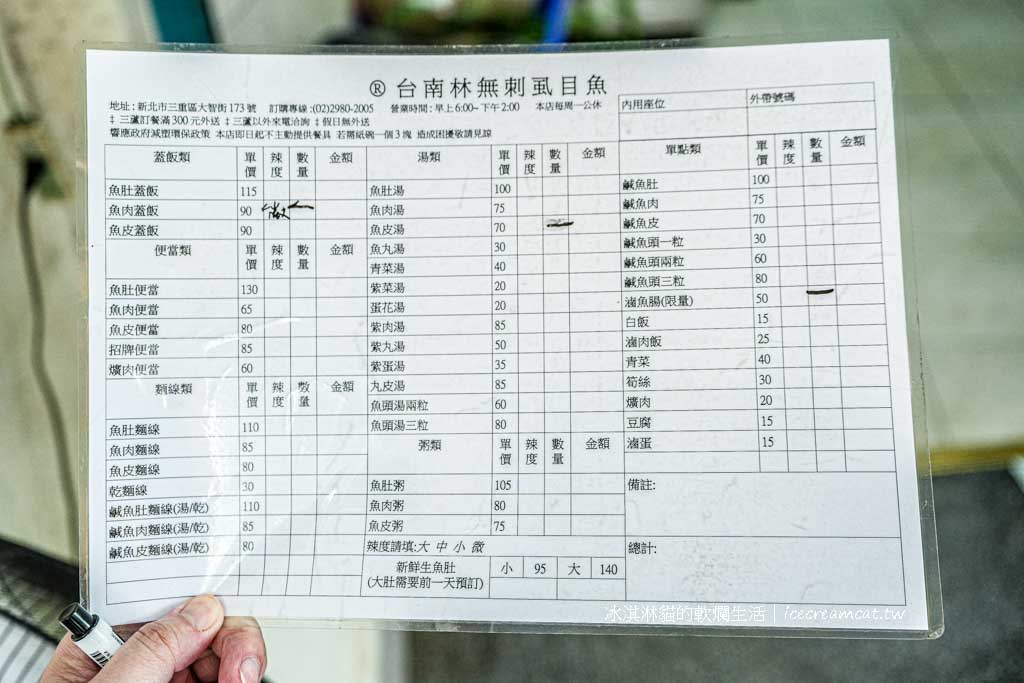 ® 台南林無刺虱目魚
地址：新北市三重區大智街173號 訂購專線：(02)2980-2005 營業時間：早上6:00~下午2:00 本店每周一公休
‡ 三蘆訂餐滿300元外送 ‡ 三蘆以外來電洽詢 ‡ 假日無外送
響應政府減塑環保政策 本店即日起不主動提供餐具 若需紙碗一個3塊 造成困擾敬請見諒
內用座位 外帶號碼
蓋飯類 單價 辣度 數量 金額
魚肚蓋飯 115
魚肉蓋飯 90 微 一
魚皮蓋飯 90
便當類 單價 辣度 數量 金額
魚肚便當 130
魚肉便當 65
魚皮便當 80
招牌便當 85
爌肉便當 60
麵線類 單價 辣度 數量 金額
魚肚麵線 110
魚肉麵線 85
魚皮麵線 80
乾麵線 30
鹹魚肚麵線(湯/乾) 110
鹹魚肉麵線(湯/乾) 85
鹹魚皮麵線(湯/乾) 80
湯類 單價 辣度 數量 金額
魚肚湯 100
魚肉湯 75
魚皮湯 70 一
魚丸湯 30
青菜湯 40
紫菜湯 20
蛋花湯 20
紫肉湯 85
紫丸湯 50
紫蛋湯 35
丸皮湯 85
魚頭湯兩粒 60
魚頭湯三粒 80
粥類 單價 辣度 數量 金額
魚肚粥 105
魚肉粥 80
魚皮粥 75
辣度請填：大 中 小 微
新鮮生魚肚 小 95 大 140
(大肚需要前一天預訂)
單點類 單價 辣度 數量 金額
鹹魚肚 100
鹹魚肉 75
鹹魚皮 70
鹹魚頭一粒 30
鹹魚頭兩粒 60
鹹魚頭三粒 80
滷魚腸(限量) 50 一
白飯 15
滷肉飯 25
青菜 40
筍絲 30
爌肉 20
豆腐 15
滷蛋 15
備註：
總計：
冰淇淋貓的軟爛生活｜icecreamcat.tw